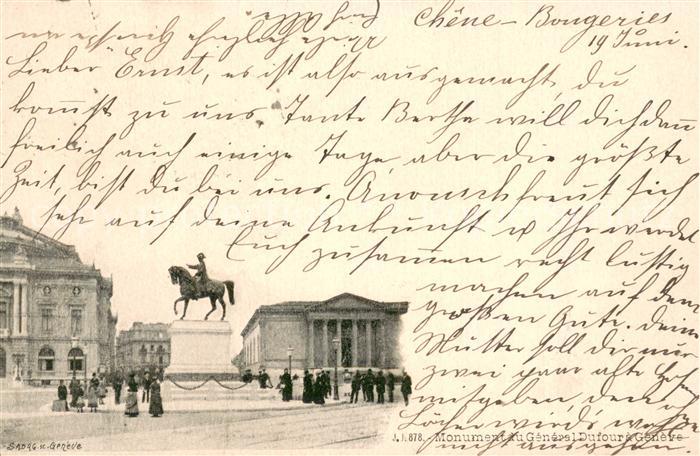 Chêne-Bougeries
19 Juni.
Lieber Ernst, es ist also ausgemacht, du
kommst zu uns Tante Bertha will dich dann
freilich auch einige Tage, aber die größte
Zeit, bist du bei uns. freut sich
sehr auf deine Ankunft u Ihr werdet
Euch zusammen recht lustig
machen auf dem
großen Gute. Deine
Mutter soll dir nur
zwei paar alte
mitgeben, denn
Löcher wird's
nicht ausgehen
J.J. 878. - Monument du Général Dufour à Genève
SADAG. u. Genève